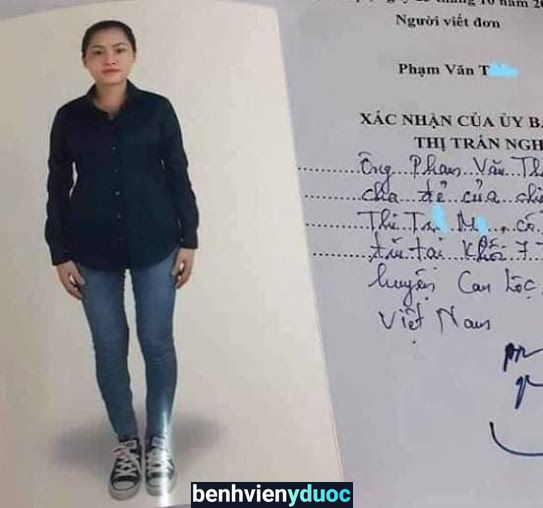 Người viết đơn
Phạm Văn T
XÁC NHẬN CỦA ỦY BA
THỊ TRẤN NGH
Ông Phan Văn Th
cha đẻ của chị
Thị Tr M , có
tại Khối 7 T
huyện Can Lộc,
Việt Nam
benhvienyduoc